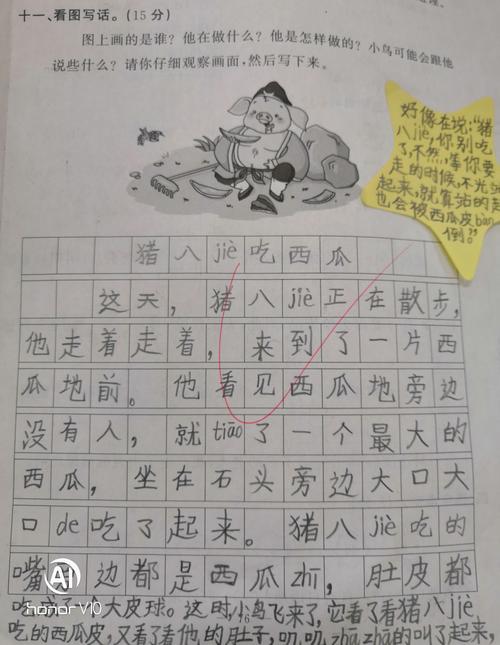 十一、看图写话。(15分)
图上画的是谁？他在做什么？他是怎样做的？小鸟可能会跟他
说些什么？请你仔细观察画面，然后写下来。
猪八jiè吃西瓜
这天，猪八jiè正在散步，
他走着走着，来到了一片西
瓜地前。他看见西瓜地旁边
没有人，就tiāo了一个最大的
西瓜，坐在石头旁边大口大
口de吃了起来。猪八jiè吃的
嘴 边都是西瓜zhī，肚皮都
吃成了个大皮球。这时，小鸟飞来了，它看了看猪八jiè
吃的西瓜皮，又看了看他的肚子，叨叨zhāzhā的叫了起来，
好像在说：“猪
八jiè，你别吃
了，不然，等你要
走的时候，不光
起来，就算站的起
也会被西瓜皮bàn
倒。”
16
AI
honor V10